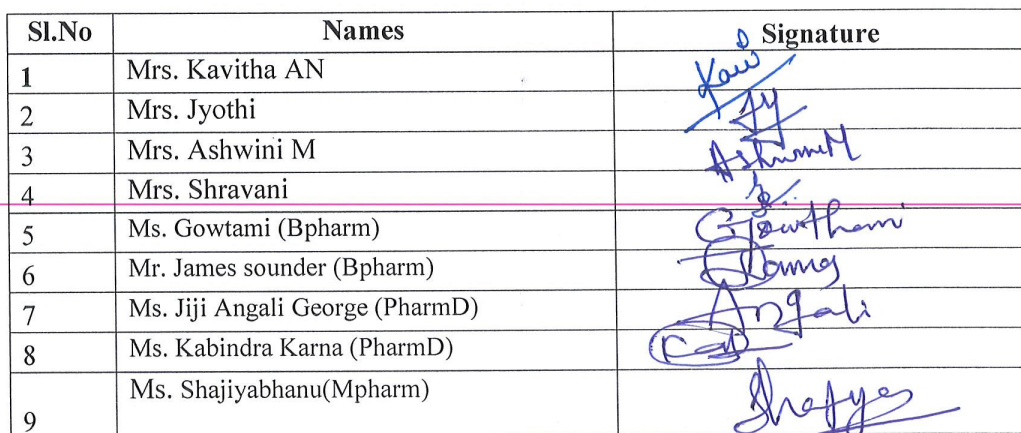 Sl.No Names Signature
1 Mrs. Kavitha AN Kavi
2 Mrs. Jyothi Jy
3 Mrs. Ashwini M AshwiniM
4 Mrs. Shravani
5 Ms. Gowtami (Bpharm) Gowthami
6 Mr. James sounder (Bpharm)
7 Ms. Jiji Angali George (PharmD) Angali
8 Ms. Kabindra Karna (PharmD)
9 Ms. Shajiyabhanu(Mpharm)